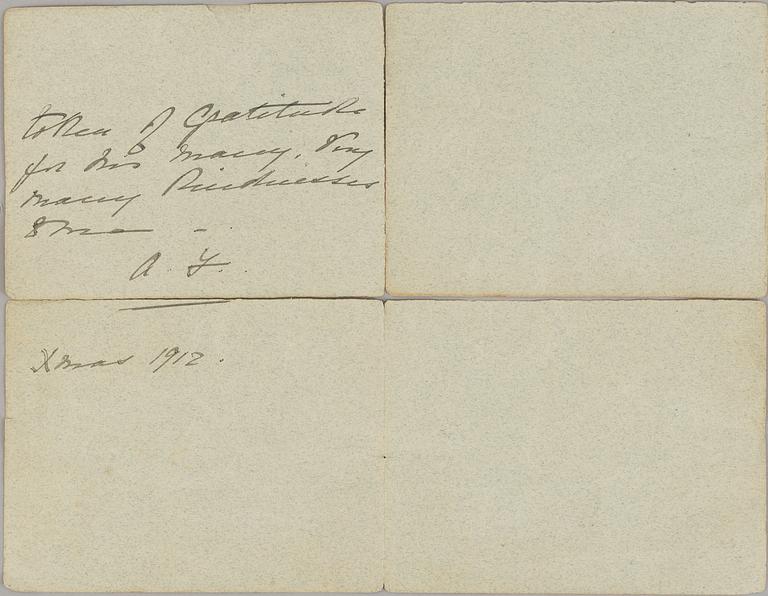 token of Gratitude
for his many, Very
many Kindnesses
A. Y.
Xmas 1912.